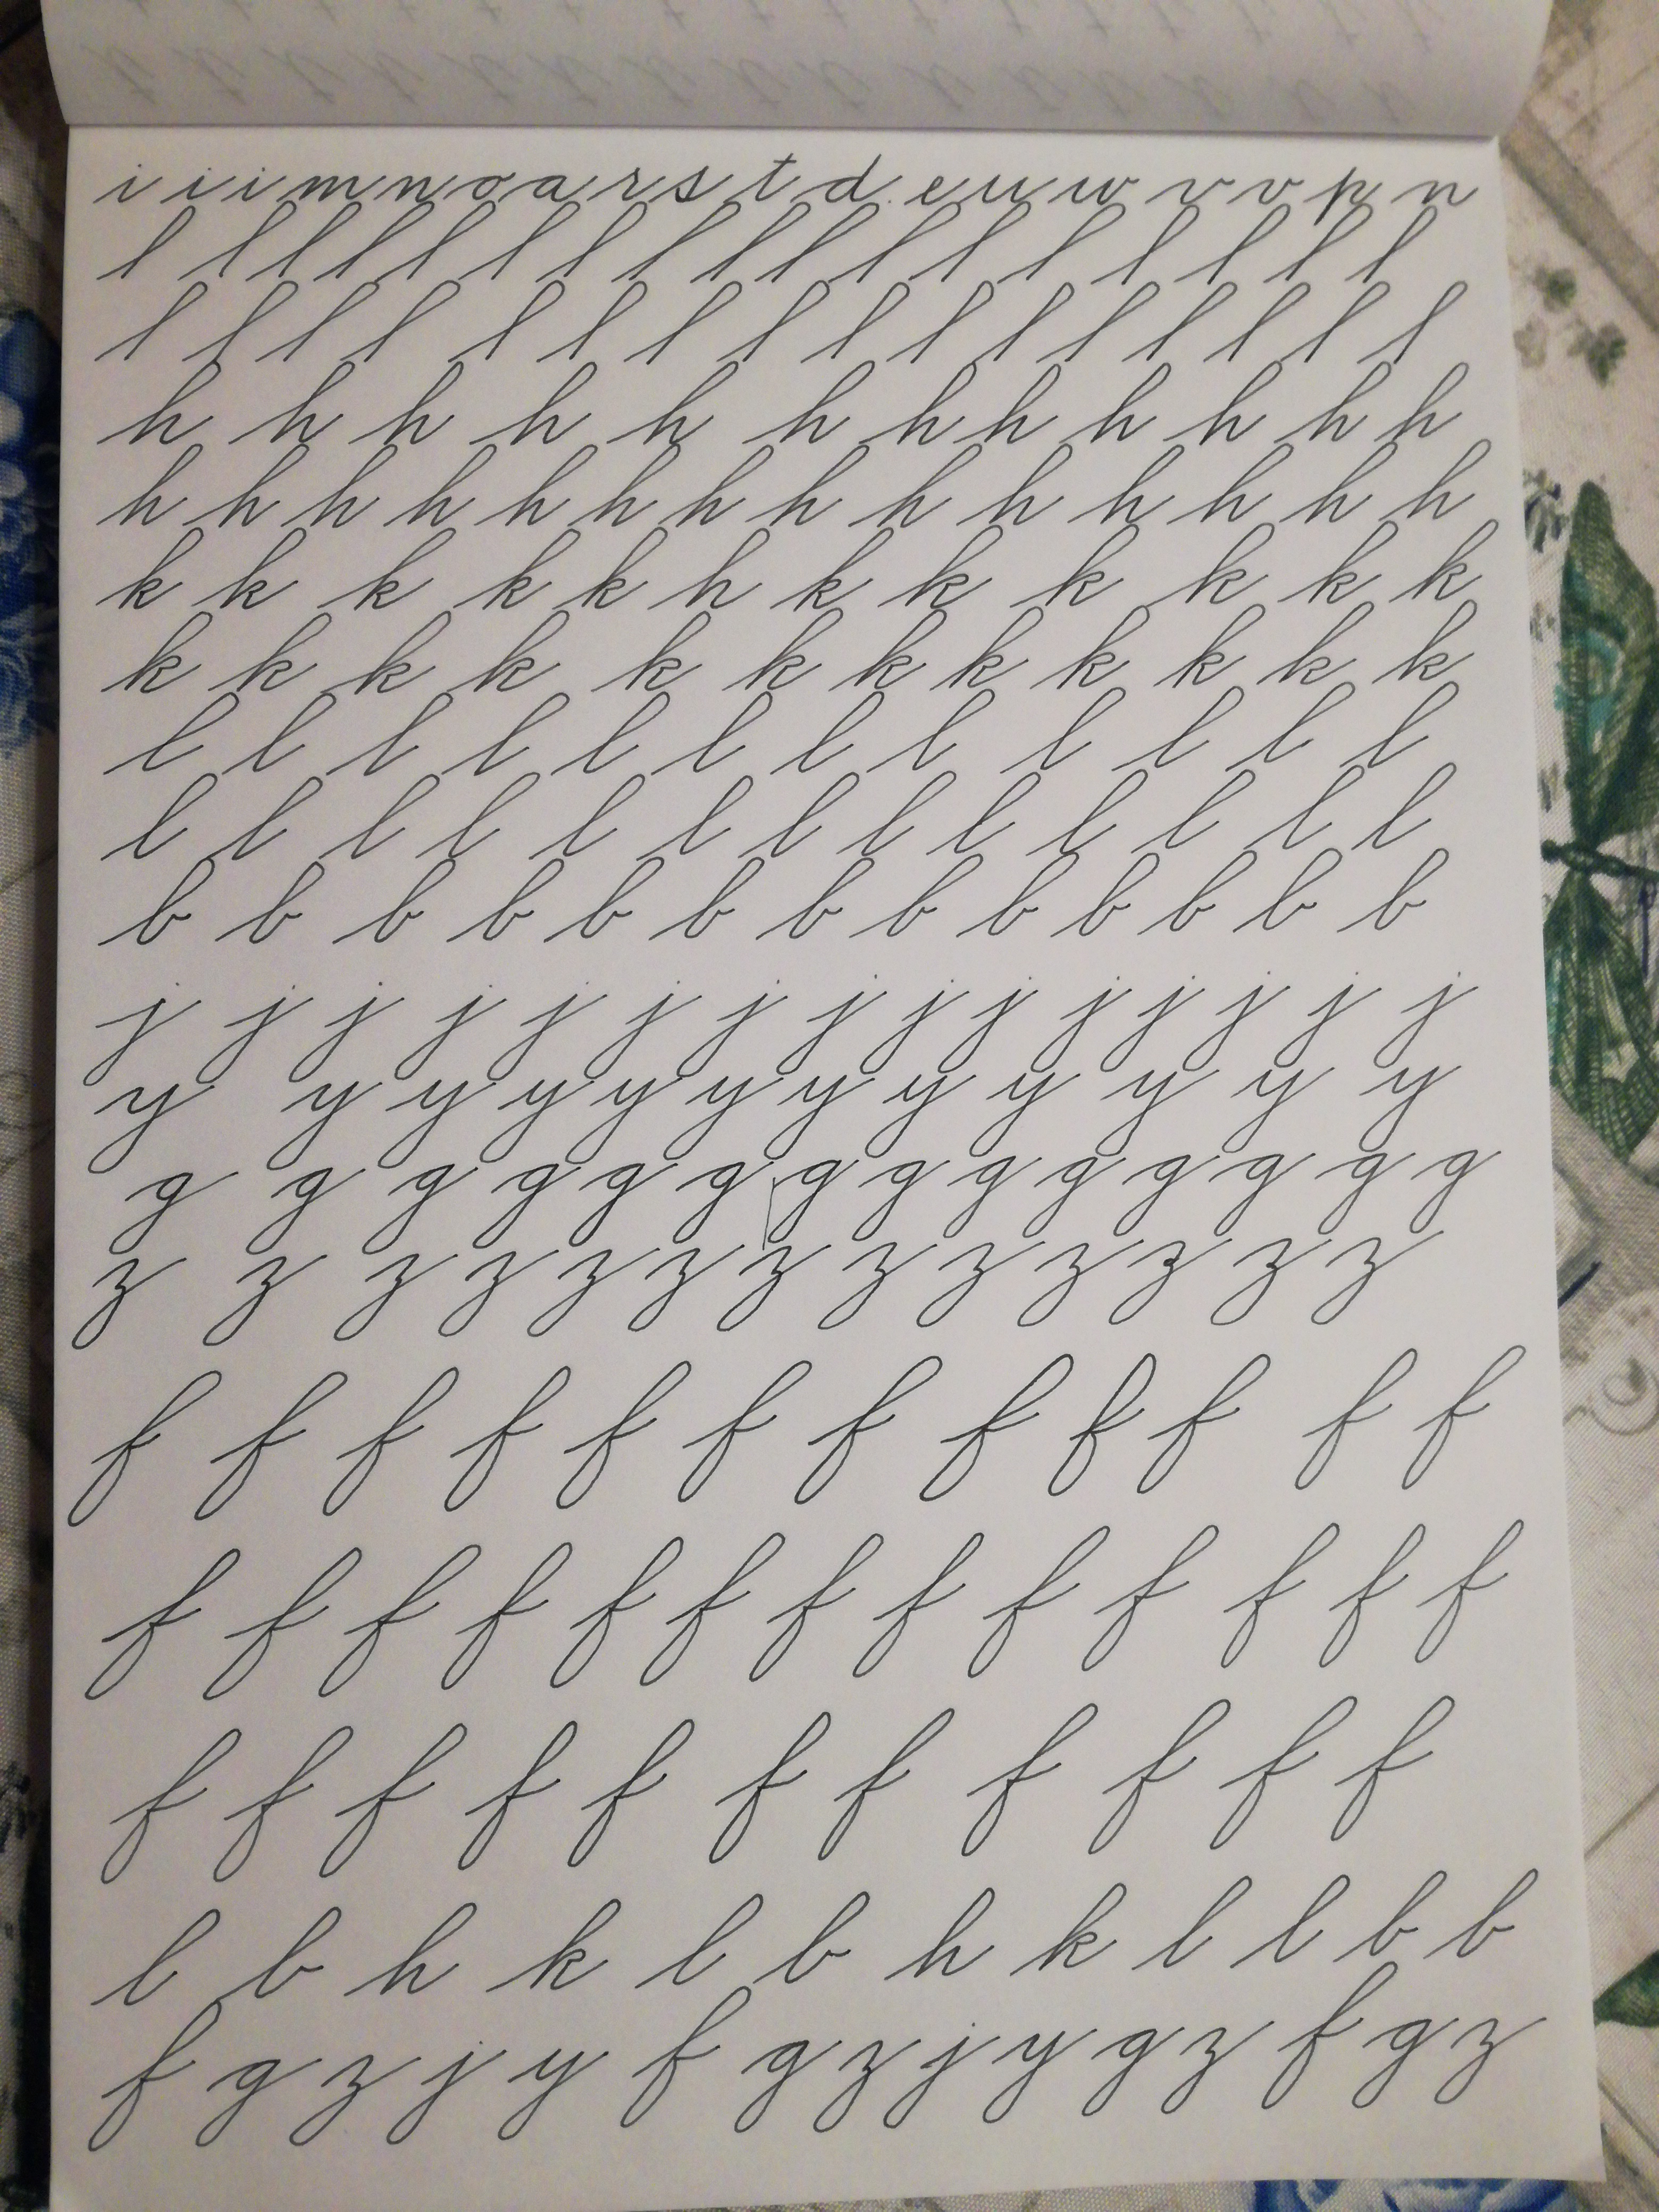 i i i m n o a r s t d e u w v v p n
l l l l l l l l l l l l l l l l l
l l l l l l l l l l l l l l l l
h h h h h h h h h h h h
h h h h h h h h h h h h h h
k k k k k h k k k k k k
k k k k k k k k k k k k
l l l l l l l l l l l l
l l l l l l l l l l l l l
b b b b b b b b b b b b b
j j j j j j j j j j j j j j j
y y y y y y y y y y y y
g g g g g g g g g g g g g g
z z z z z z z z z z z z z
f f f f f f f f f f f f
f f f f f f f f f f f f f
f f f f f f f f f f f
l b h k l b h k l l b b
f g z j y f g z j y g z f g z